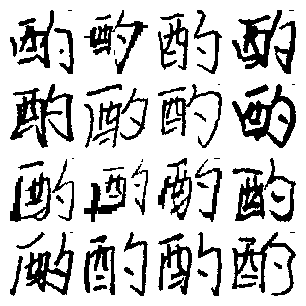 酌酌酌酌
酌酌酌酌
酌酌酌酌
酌酌酌酌